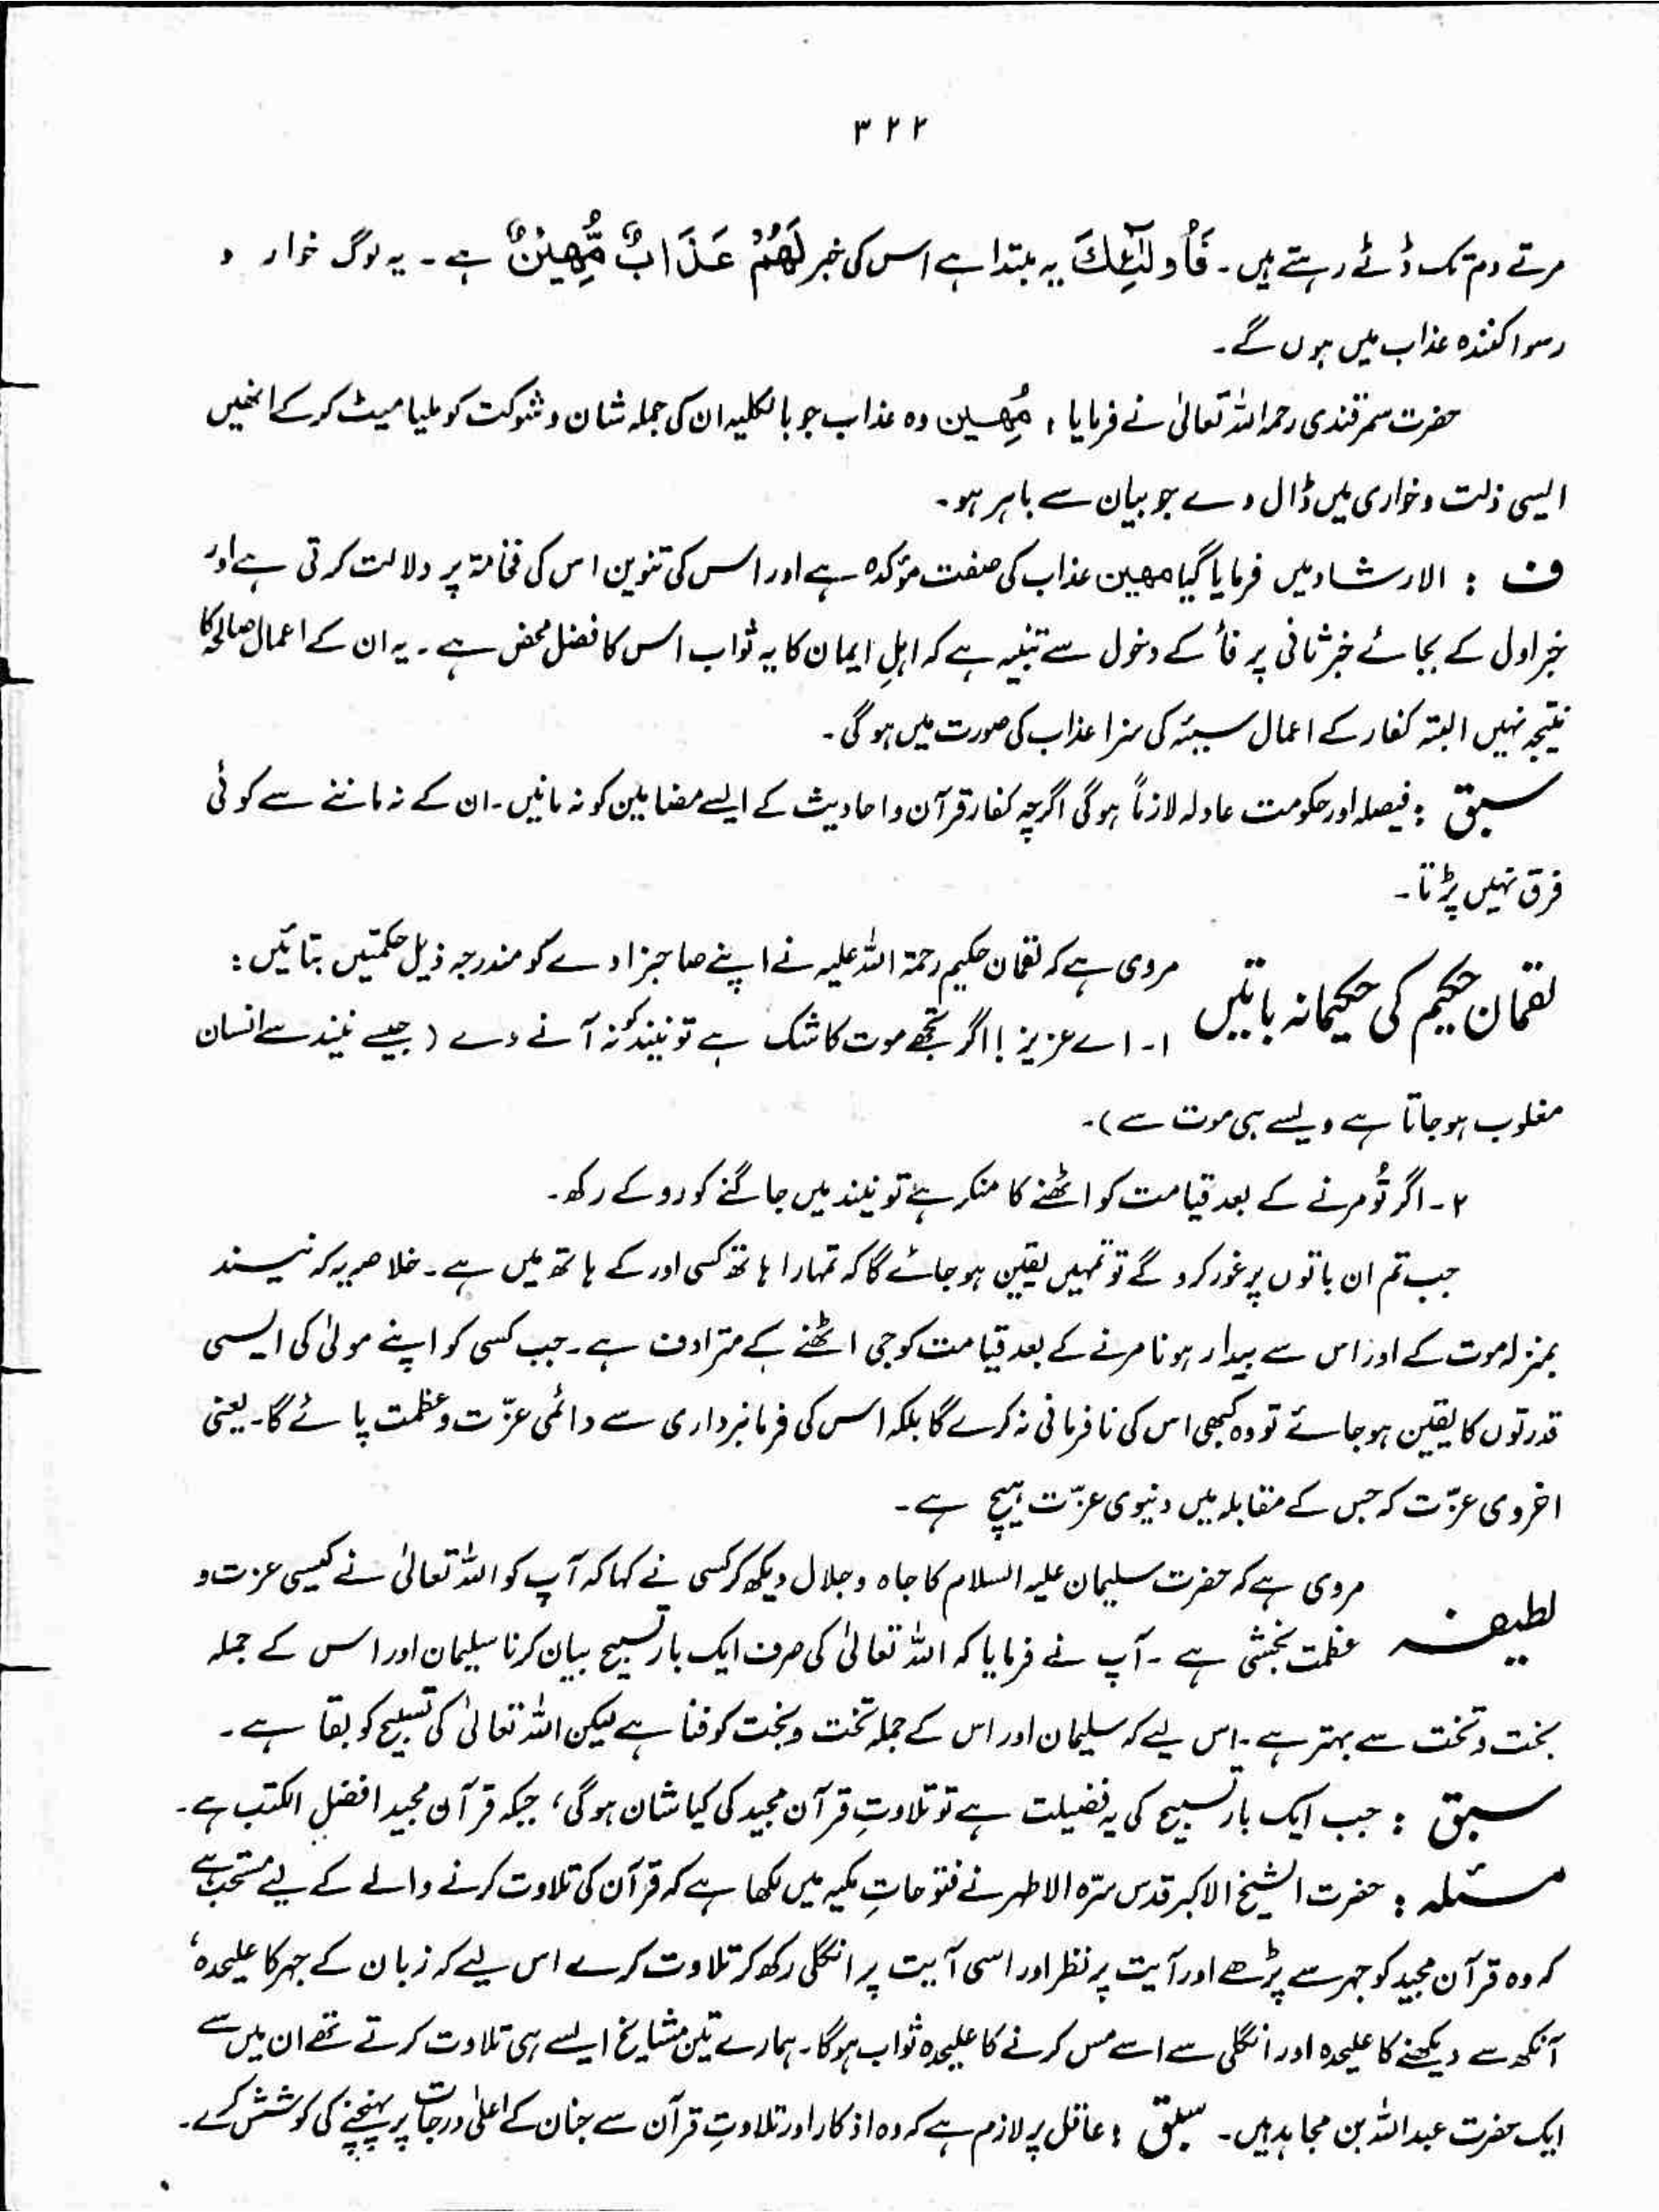 ۳۲۲
مرتے دم تک ڈٹے رہتے ہیں۔ فَاُولٰٓئِكَ یہ مبتدا ہے اس کی خبر لَهُمْ عَذَابٌ مُّهِيْنٌ ہے۔ یہ لوگ خوار و
رسوا کنندہ عذاب میں ہوں گے۔
حضرت سمرقندی رحمہ اللہ تعالیٰ نے فرمایا : مُہین وہ عذاب جو بالکلیہ ان کی جملہ شان و شوکت کو ملیامیٹ کرکے انھیں
ایسی ذلت و خواری میں ڈال دے جو بیان سے باہر ہو۔
ف : الارشاد میں فرمایا گیا مہین عذاب کی صفت مؤکدہ ہے اور اس کی تنوین اس کی فخامۃ پر دلالت کرتی ہے اور
خبر اول کے بجائے خبر ثانی پر فأ کے دخول سے تنبیہ ہے کہ اہلِ ایمان کا یہ ثواب اس کا فضل محض ہے۔ یہ ان کے اعمال صالحہ کا
نتیجہ نہیں البتہ کفار کے اعمال سیئہ کی سزا عذاب کی صورت میں ہوگی۔
سبق : فیصلہ اور حکومت عادلہ لازماً ہوگی اگرچہ کفار قرآن و احادیث کے ایسے مضامین کو نہ مانیں۔ ان کے نہ ماننے سے کوئی
فرق نہیں پڑتا۔
لقمان حکیم کی حکیمانہ باتیں مروی ہے کہ لقمان حکیم رحمۃ اللہ علیہ نے اپنے صاحبزادے کو مندرجہ ذیل حکمتیں بتائیں :
۱۔ اے عزیز ! اگر تجھے موت کا شک ہے تو نیند کو نہ آنے دے (جیسے نیند سے انسان
مغلوب ہو جاتا ہے ویسے ہی موت سے)۔
۲۔ اگر تُو مرنے کے بعد قیامت کو اٹھنے کا منکر ہے تو نیند میں جاگنے کو روکے رکھ۔
جب تم ان باتوں پر غور کرو گے تو تمہیں یقین ہو جائے گا کہ تمہارا ہاتھ کسی اور کے ہاتھ میں ہے۔ خلاصہ یہ کہ نیند
بمنزلہ موت کے اور اس سے بیدار ہونا مرنے کے بعد قیامت کو جی اٹھنے کے مترادف ہے۔ جب کسی کو اپنے مولیٰ کی ایسی
قدرتوں کا یقین ہو جائے تو وہ کبھی اس کی نافرمانی نہ کرے گا بلکہ اس کی فرمانبرداری سے دائمی عزّت و عظمت پائے گا۔ یعنی
اخروی عزّت کہ جس کے مقابلہ میں دنیوی عزّت ہیچ ہے۔
لطیفہ مروی ہے کہ حضرت سلیمان علیہ السلام کا جاہ و جلال دیکھ کر کسی نے کہا کہ آپ کو اللہ تعالیٰ نے کیسی عزت و
عظمت بخشی ہے۔ آپ نے فرمایا کہ اللہ تعالیٰ کی صرف ایک بار تسبیح بیان کرنا سلیمان اور اس کے جملہ
بخت و تخت سے بہتر ہے۔ اس لیے کہ سلیمان اور اس کے جملہ تخت و بخت کو فنا ہے لیکن اللہ تعالیٰ کی تسبیح کو بقا ہے۔
سبق : جب ایک بار تسبیح کی یہ فضیلت ہے تو تلاوتِ قرآن مجید کی کیا شان ہوگی، جبکہ قرآن مجید افضل الکتب ہے۔
مسئلہ : حضرت الشیخ الاکبر قدس سرّہ الاطہر نے فتوحاتِ مکیہ میں لکھا ہے کہ قرآن کی تلاوت کرنے والے کے لیے مستحب ہے
کہ وہ قرآن مجید کو جہر سے پڑھے اور آیت پر نظر اور اسی آیت پر انگلی رکھ کر تلاوت کرے اس لیے کہ زبان کے جہر کا علیحدہ،
آنکھ سے دیکھنے کا علیحدہ اور انگلی سے اسے مس کرنے کا علیحدہ ثواب ہوگا۔ ہمارے تین مشایخ ایسے ہی تلاوت کرتے تھے ان میں سے
ایک حضرت عبداللہ بن مجاہد ہیں۔ سبق : عاقل پر لازم ہے کہ وہ اذکار اور تلاوتِ قرآن سے جنان کے اعلیٰ درجات پر پہنچنے کی کوشش کرے۔